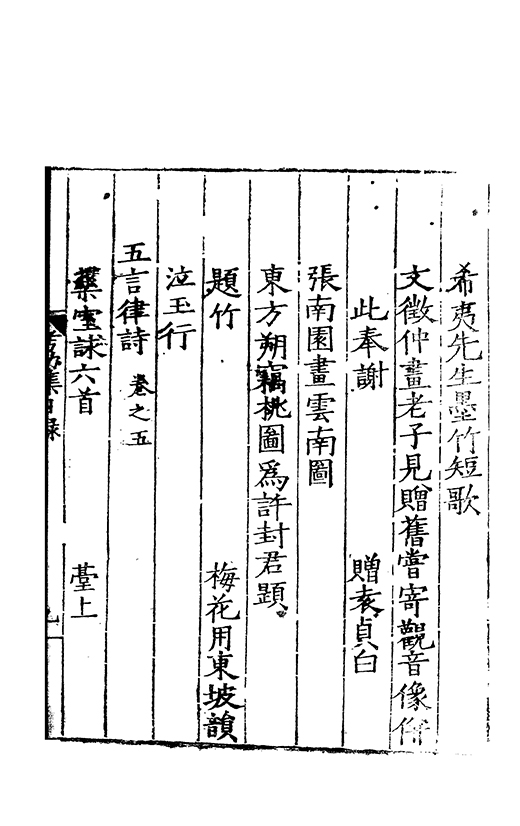 希夷先生墨竹短歌
文徵仲畫老子見贈舊嘗寄觀音像作
此奉謝　贈袁貞白
張南園畫雲南圖
東方朔竊桃圖爲許封君題
題竹　梅花用東坡韻
泣玉行
五言律詩 卷之五
詠六首　臺上
集目錄